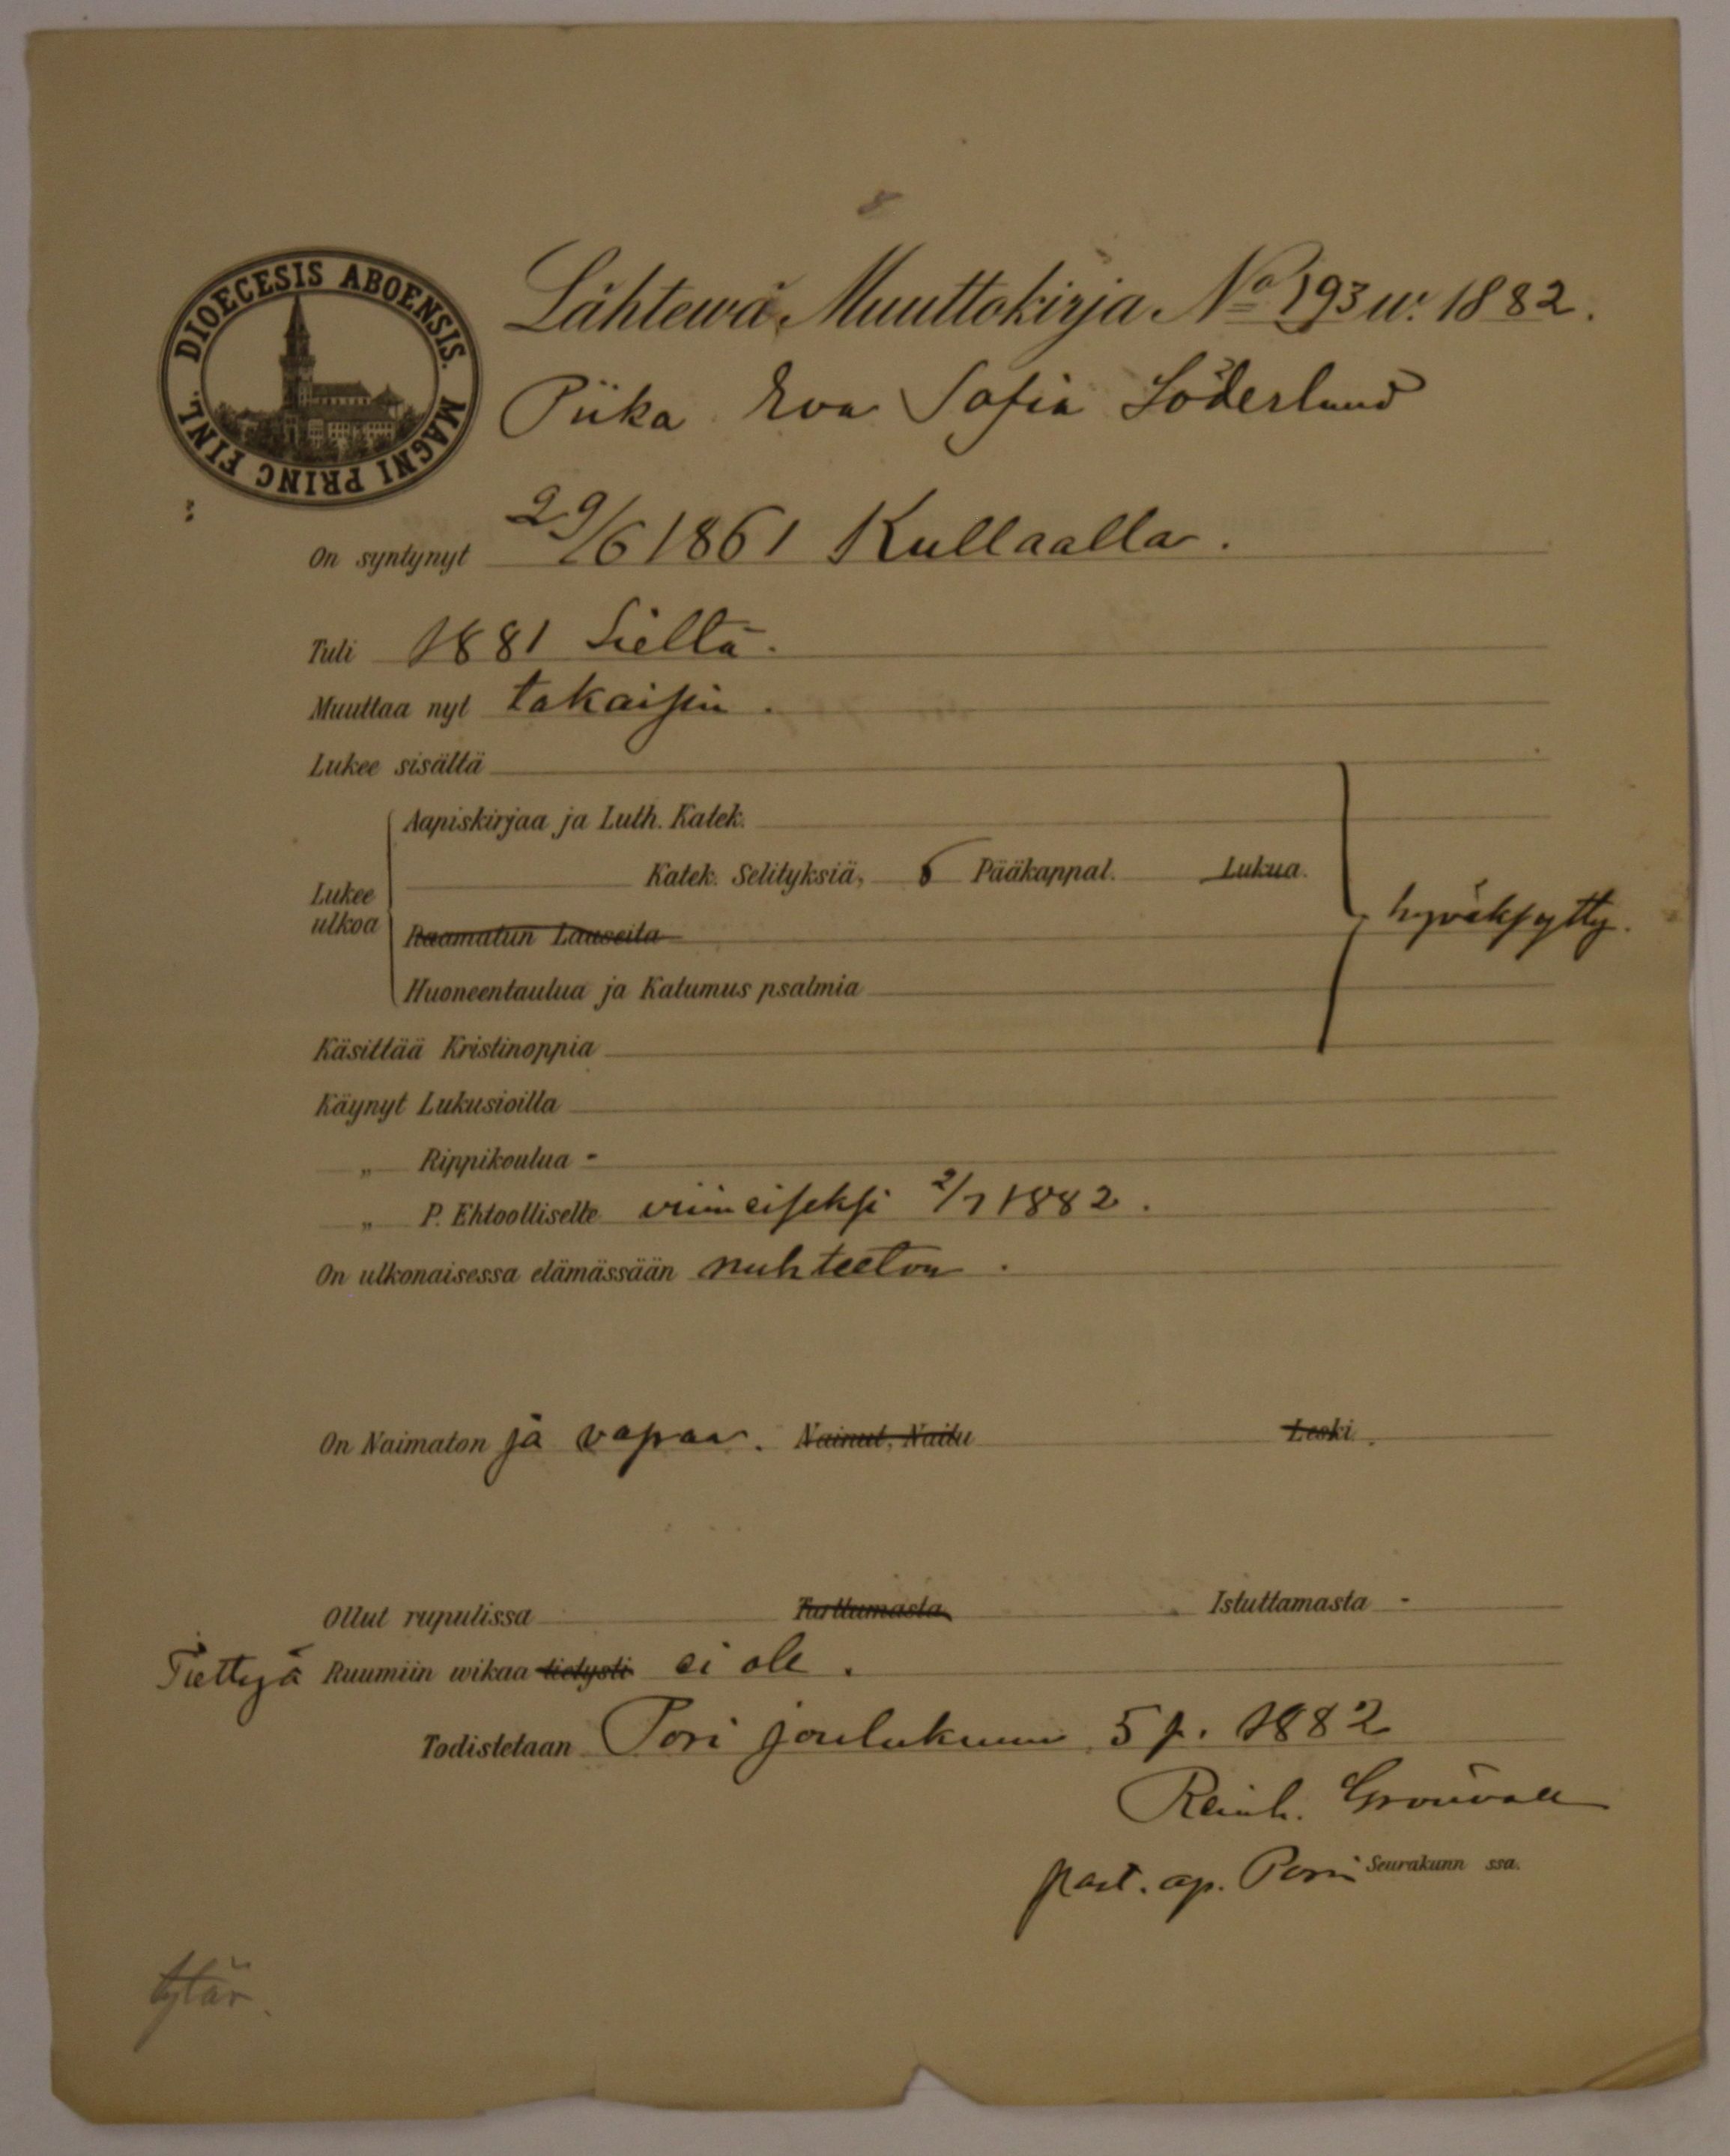 DIOECESIS ABOENSIS. MAGNI PRINC FINL.
Lähtewä Muuttokirja No 193 w. 1882.
Piika Eva Sofia Söderlund
On syntynyt 29/6 1861 Kullaalla.
Tuli 1881 Sieltä.
Muuttaa nyt takaisin.
Lukee sisältä
Lukee ulkoa
Aapiskirjaa ja Luth. Katek.
Katek. Selityksiä, 6 Pääkappal. Lukua.
Raamatun Lauseita
hyväksytty.
Huoneentaulua ja Katumus psalmia
Käsittää Kristinoppia
Käynyt Lukusioilla
„ Rippikoulua -
„ P. Ehtoolliselle viimeiseksi 2/7 1882.
On ulkonaisessa elämässään nuhteeton.
On Naimaton ja vapaa. Nainut, Naitu Leski.
Ollut rupulissa Tarttumasta Istuttamasta -
Tiettyjä Ruumiin wikaa tietysti ei ole.
Todistetaan Pori joulukuun 5 p. 1882
Reinh. Grönvall
past. ap. Porin Seurakunn ssa.
tytär.